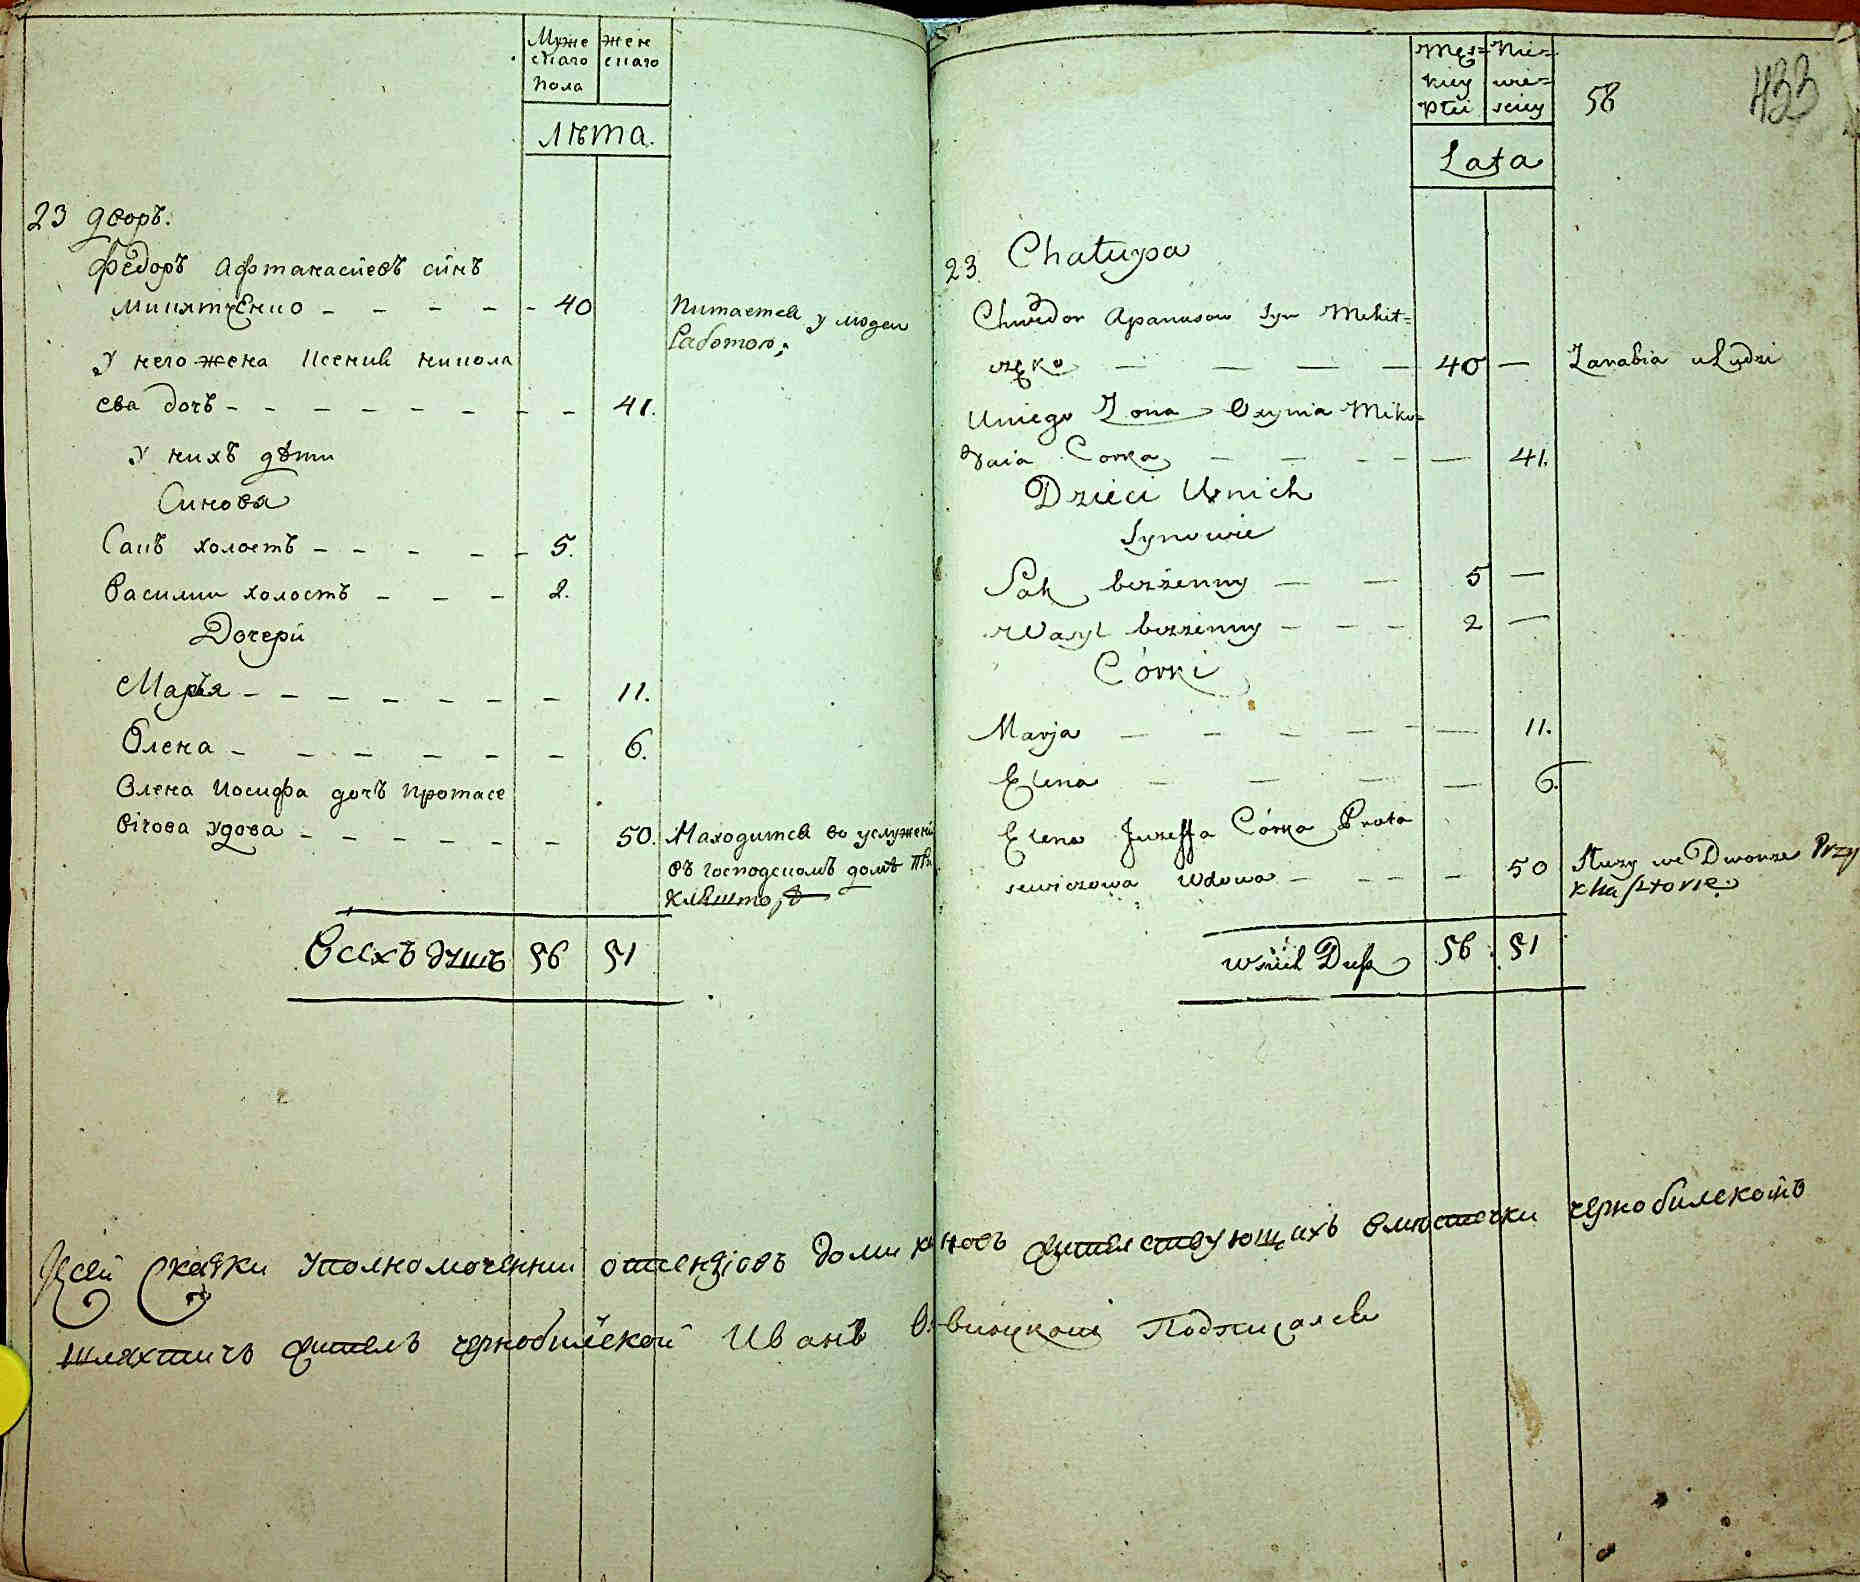 Муже
скаго
пола
жен
скаго
лѣта.
23 дворъ.
Федоръ Афтанасиевъ синъ
Микитченко - - - - - 40
Питается у людеи
работою;
У него жена Ксения никола
ева дочъ - - - - - - - - 41.
У нихъ дѣти
Синовя
Сакъ холостъ - - - - - 5.
Василии холостъ - - - 2.
Дочери
Марья - - - - - - - 11.
Олена - - - - - - 6.
Олена Иосифа дочъ протасе
вичова удова - - - - - - 50.
Находится во услужени
въ господскомъ домѣ при
Кляшторѣ
Всѣхъ душъ 56 51
Męz=
kiey
Płci
Nie=
wie=
sciey
58
433
Lata
23 Chałupa
Chwedor Apanasow Syn Mikit=
częko — — — — 40 —
Zarabia u Ludzi
U niego Zona Oxynia Miko=
łaia Corka — — - - — 41.
Dzieci U nich
Synowie
Sak bezżenny — — 5 —
Wasyl bezżenny — - - 2 —
Córki
Marja — - - — - — 11.
Elena — — — — 6.
Elena Juzeffa Córka Prota
sewiczowa Wdowa — - - - 50
Służy we Dworze Przy
Klasztorze
wsich Dusz 56 51
К сей скаски уполномоченни отксендзовъ доминикановъ жителствующихъ вместечки чернобилскомъ
шляхтичъ жителъ чернобилской Иванъ Подписался